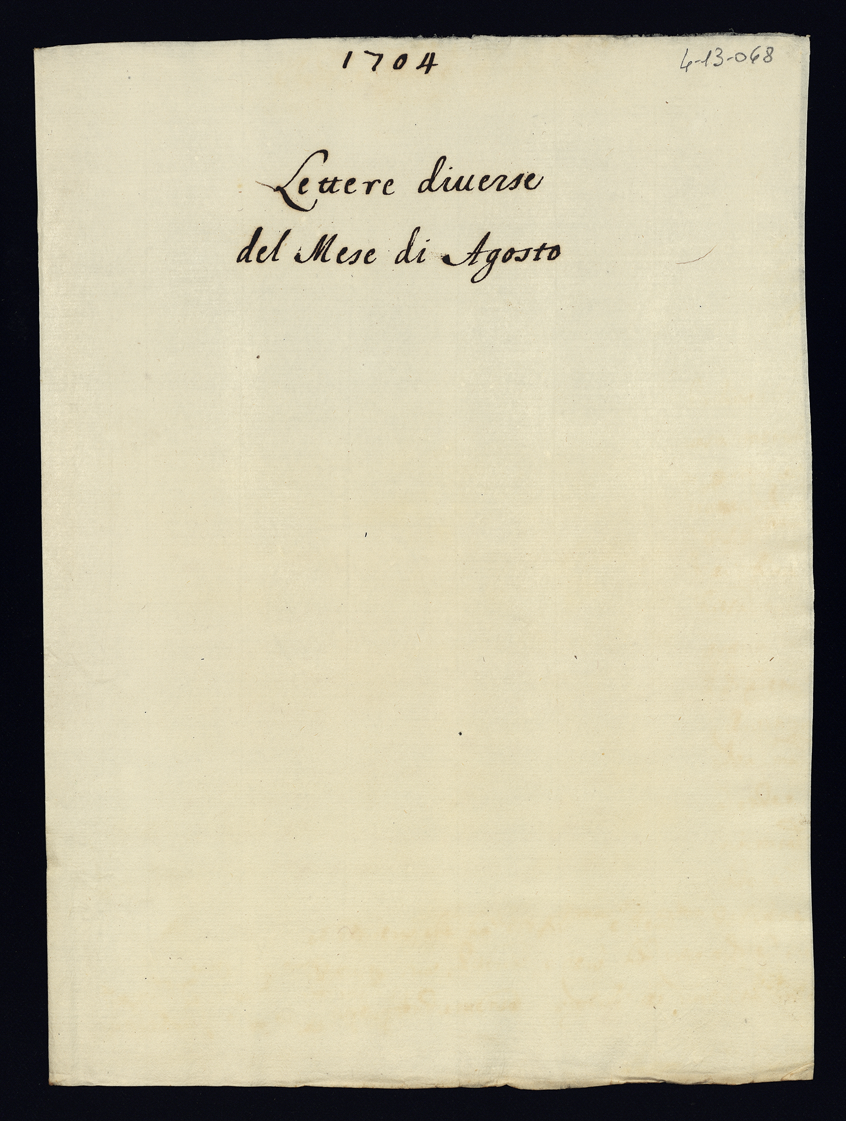 1704
4-13-068
Lettere diuerse
del Mese di Agosto